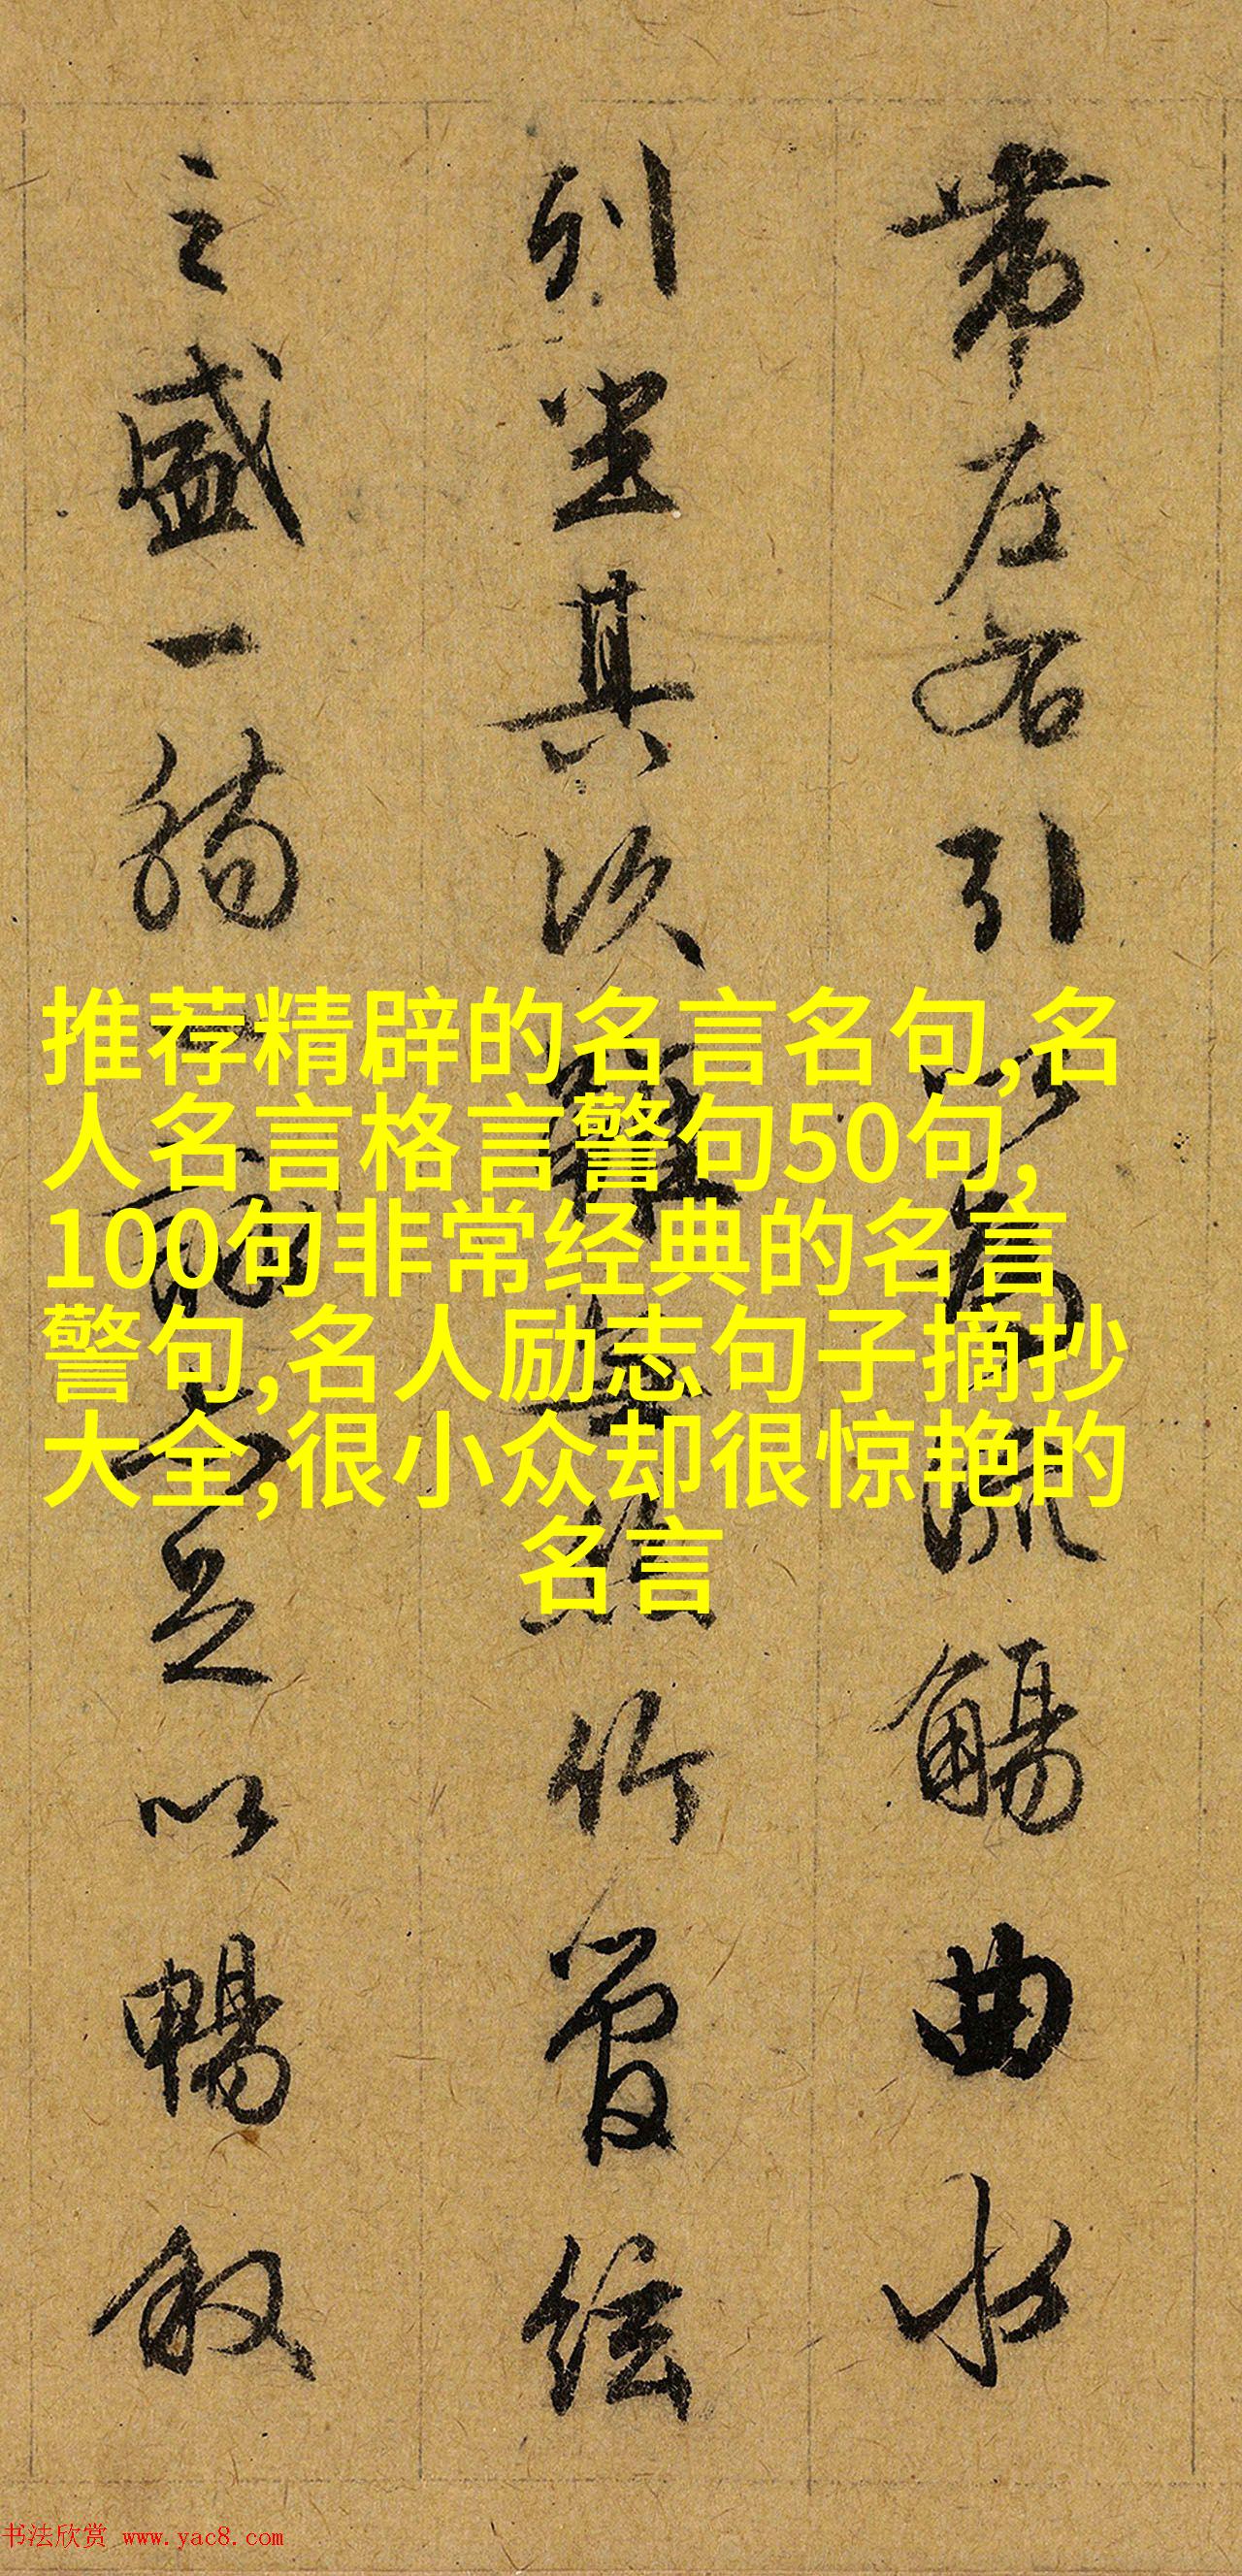 帶左右引以為流觴曲水
列坐其次雖無絲竹管絃
之盛一觴一詠亦足以暢敘
推荐精辟的名言名句,名
人名言格言警句50句,
100句非常经典的名言
警句,名人励志句子摘抄
大全,很小众却很惊艳的
名言
书法欣赏 www.yac8.com